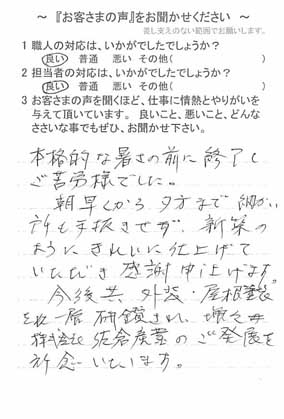 ～『お客さまの声』をお聞かせください ～
差し支えのない範囲でお願いします。
1 職人の対応は、いかがでしたでしょうか？
良い 普通 悪い その他( )
2 担当者の対応は、いかがでしたでしょうか？
良い 普通 悪い その他( )
3 お客さまの声を聞くほど、仕事に情熱とやりがいを
与えて頂いています。 良いこと、悪いこと、どんな
ささいな事でもぜひ、お聞かせ下さい。
本格的な暑さの前に終了し
ご苦労様でした。
朝早くから夕方まで 細かい
所も手抜きせず、新築の
ようにきれいに仕上げて
いただき 感謝申し上げます。
今後共 外装・屋根塗装
を 一層 研鑽され、増々
株式会社 佐倉産業のご発展を
祈念いたします。